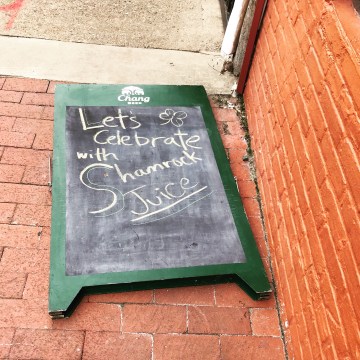 Chang
Let's
Celebrate
with
Shamrock
Juice